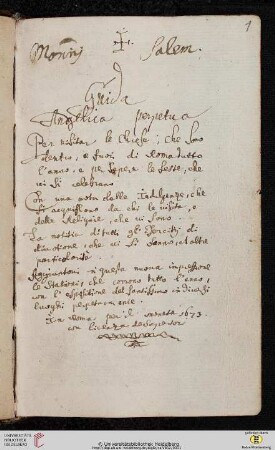 1
Salem.
Guida
Angelica perpetua
Per visitar le Chiese, che sono
dentro, e fuori di Roma tutto
l'anno, e per saper le feste, che
vi si celebrano
Con una nota delle Indulgenze, che
si acquistano da chi le visita, e
delle Reliquie, che vi sono.
La notitia di tutti gli Esercitij di
divotione, che vi si fanno, et altre
particolarità.
Aggiuntovi in questa nuova impressione
le Stationi, che corrono tutto l'anno,
con l'espositione del Santissimo in diversi
luoghi perpetuamente.
In Roma per il 1673.
con licenza de Superiori
UNIVERSITÄTS-
BIBLIOTHEK
HEIDELBERG
© Universitätsbibliothek Heidelberg